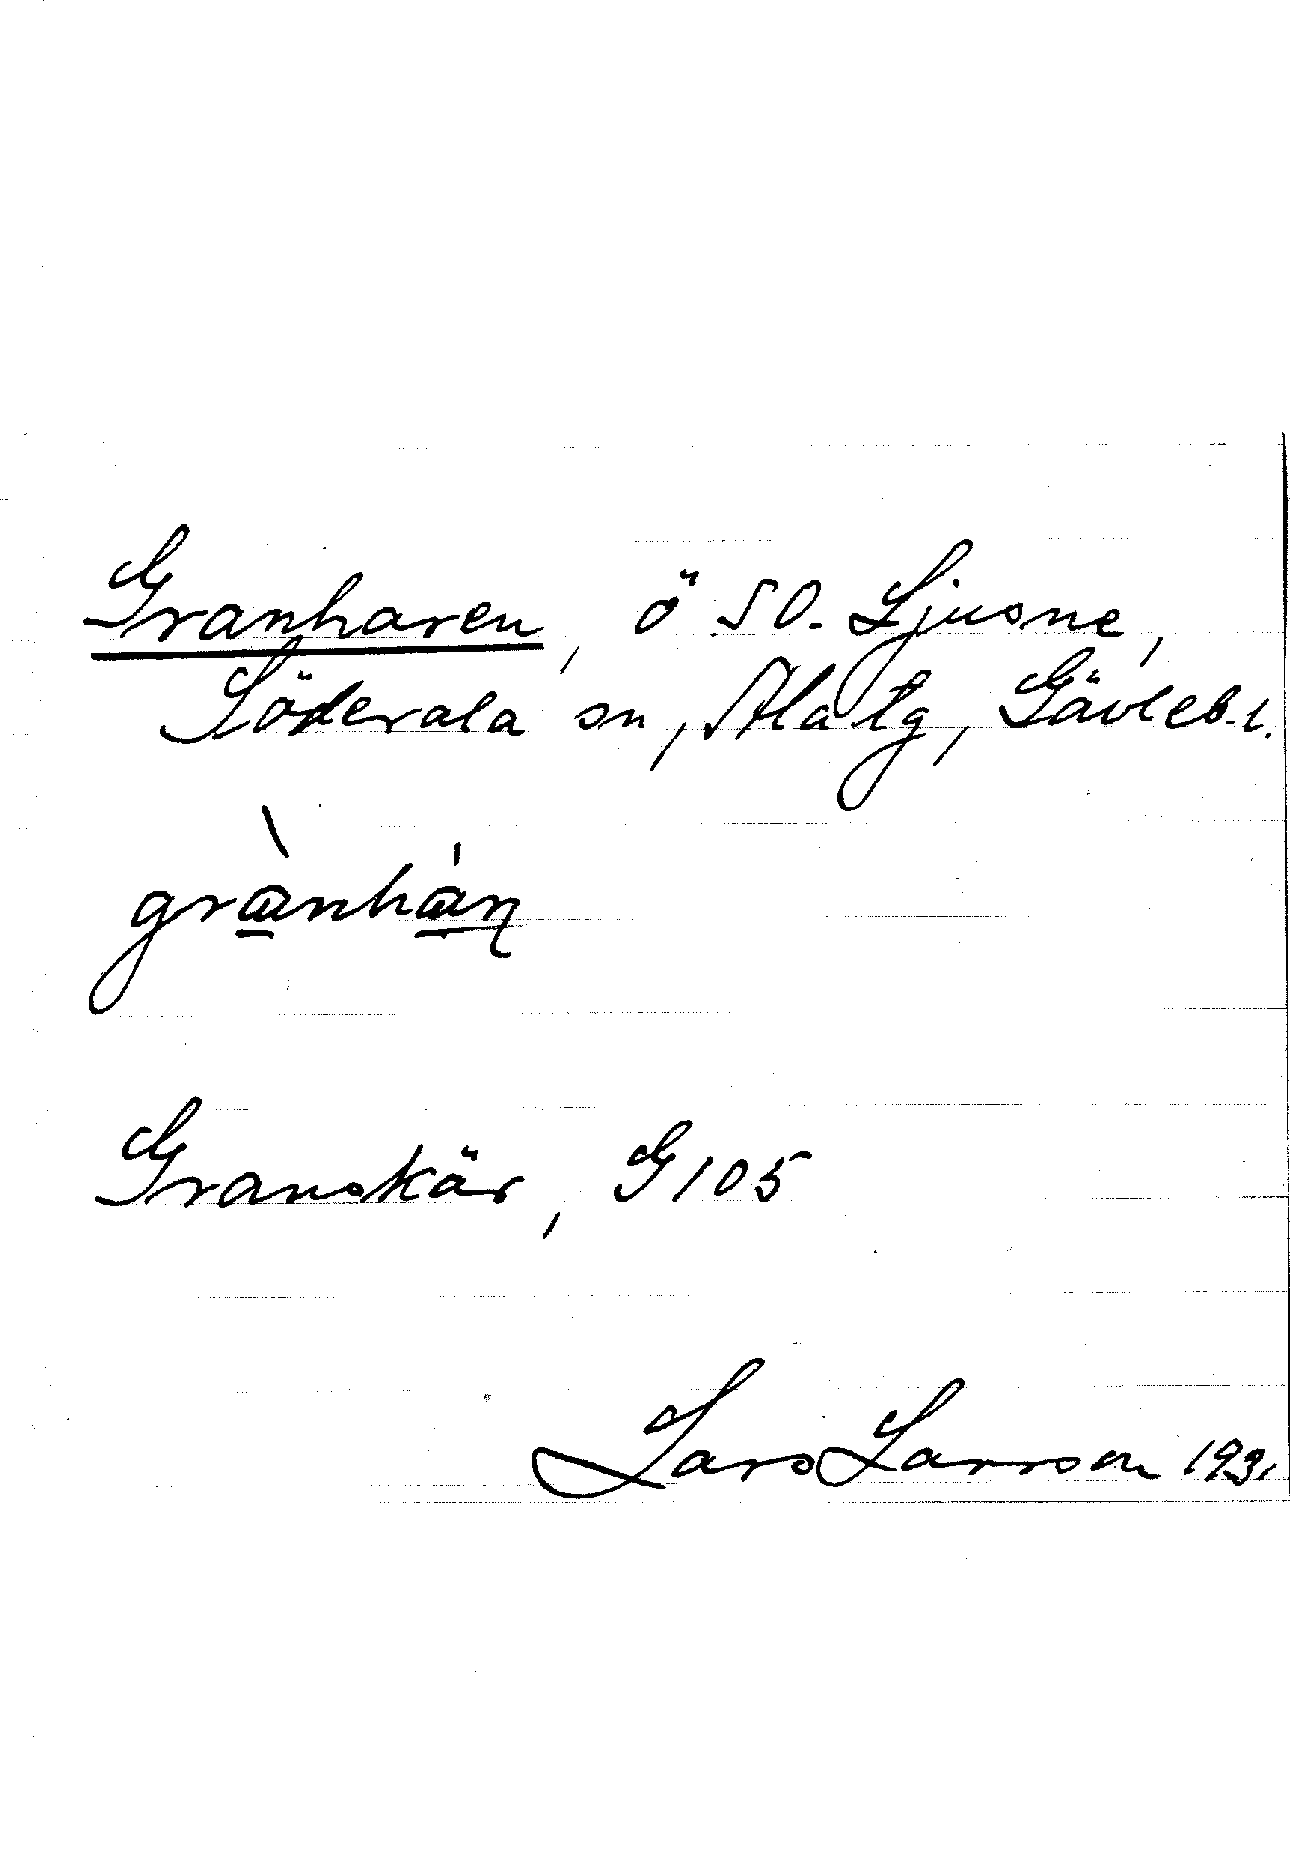 Granharen, ö SO. Ljusne,
Söderala sn, Ala tg, Gävleb. l.
grànhán
Granskär, G 105
Lars Larsson 1931